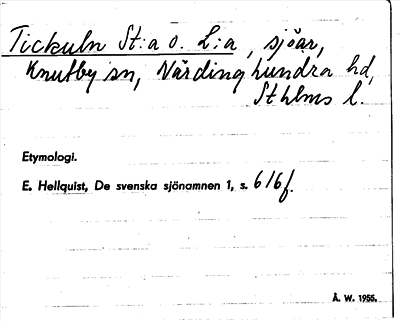 Tickuln St:a o. L:a, sjöar,
Knutby sn, Närdinghundra hd,
Sthlms l.
Etymologi.
E. Hellquist, De svenska sjönamnen 1, s. 616f.
Å. W. 1955.